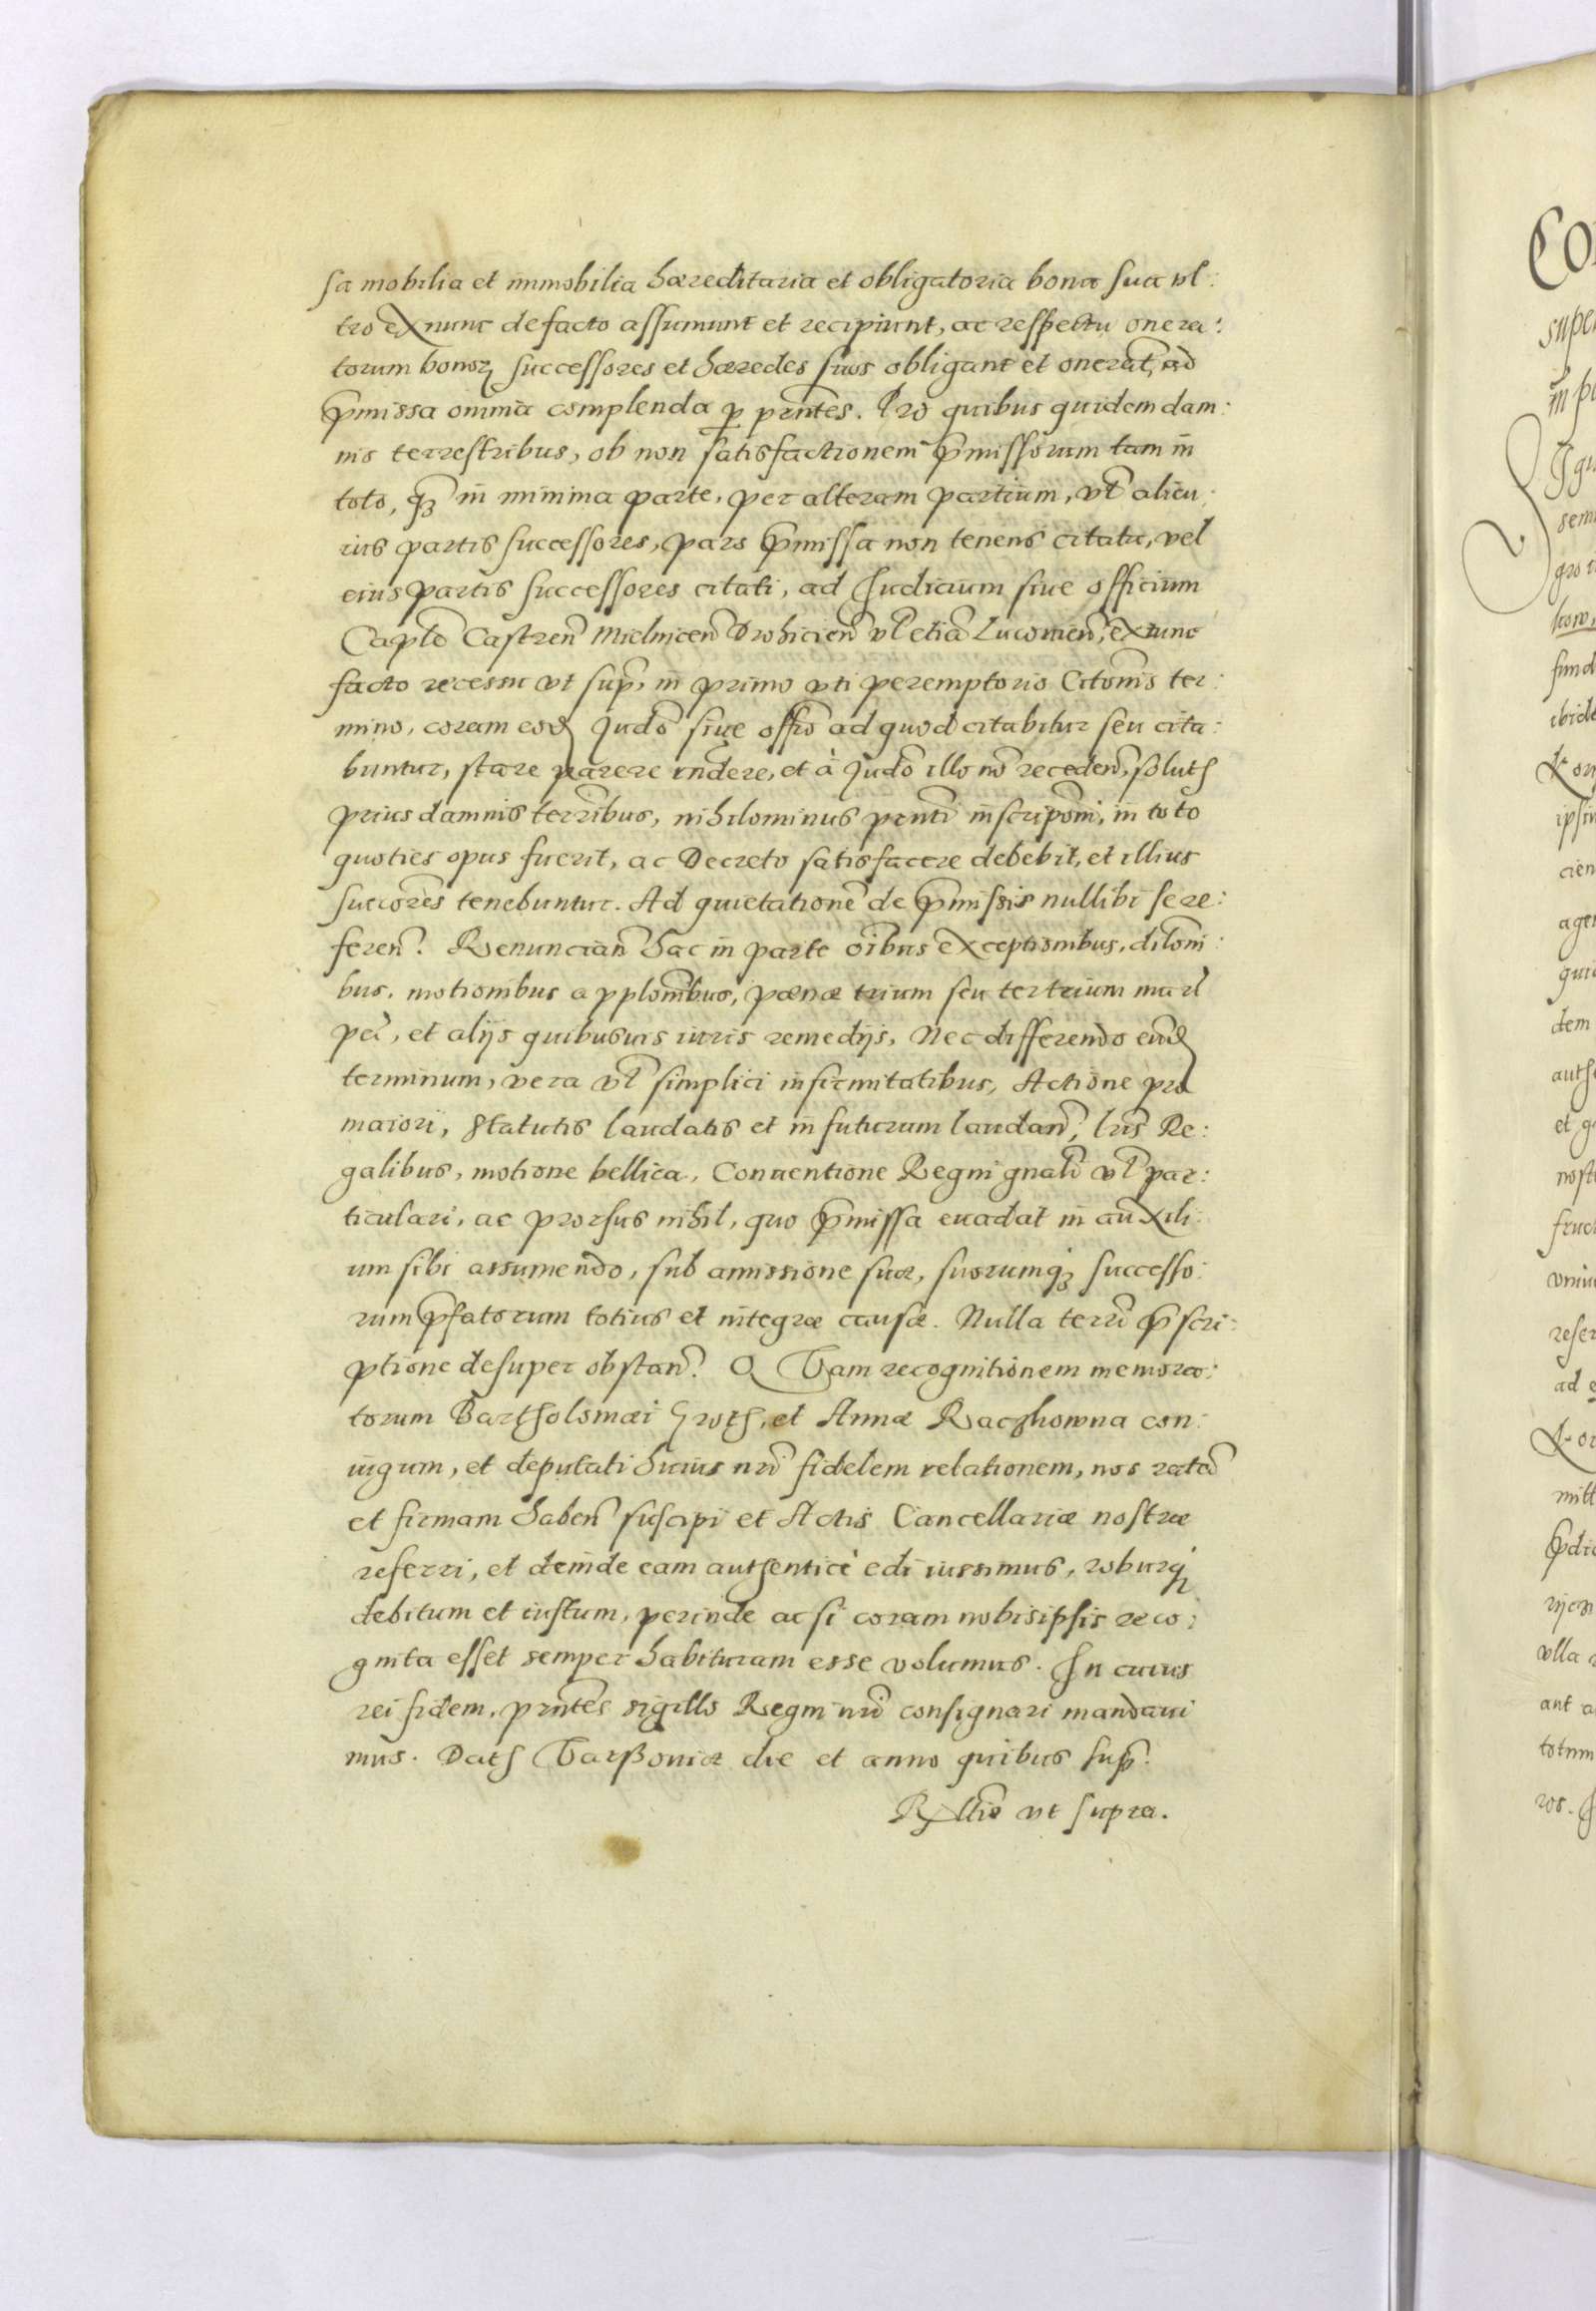 sa mobilia et immobilia hæreditaria et obligatoria bona sua vl:
tro ex nunc de facto assumunt et recipiunt, ac respectu onera:
torum bonoꝝ successores et hæredes suos obligant et onerāt, ad
p̄missa omnia complenda ꝑ pn̄tes. Pro quibus quidem dam:
nis terrestribus, ob non satisfactionem p̄missorum tam in
toto, qꝫ in minima parte, per alteram partium, vl̄ alicu:
ius partis successores, pars p̄missa non tenens citata, vel
eius partis successores citati, ad Judicium siue officium
Caplē Castren̄ Mielnicen̄ Drohicien̄ vl̄ etiā Lucouien̄, extunc
facto recessu vt sup̄, in primo vti peremptorio Citōnis ter:
mino, coram eod̄ Judō siue offō ad quod citabitur seu cita:
buntur, stare parere rn̄dere, et à Judō illo nō receden̄, solutꝭ
prius damnis terrībus, nihilominus pn̄ti inscripōni, in toto
quoties opus fuerit, ac Decreto satisfacere debebit, et illius
succōres tenebuntur. Ad quietationē de p̄missis nullibi se re:
feren̄. Renuncian̄ hac in parte oībus exceptionibus, dilōni:
bus, motionibus applōnibus, pœnæ trium seu tertrium marl
pec̄, et alijs quibusuis iuris remedijs, Nec differendo eund̄
terminum, vera vl̄ simplici infirmitatibus, Actione pro
maiori, statutis laudatis et in futurum laudan̄, lrīs Re:
galibus, motione bellica, Conuentione Regni gnāli vl̄ par:
ticulari, ac prorsus nihil, quo p̄missa euadat in auxili:
um sibi assumendo, sub amissione suæ, suorumqꝫ successo:
rum p̄fatorum totius et integræ causæ. Nulla terrī p̄scri:
ptione desuper obstan̄. Q Vam recognitionem memora:
torum Bartholomæi Groth, et Annæ Raczkowna con:
iugum, et deputati huius nr̄i fidelem relationem, nos ratā
et firmam haben̄ suscipi et Actis Cancellariæ nostræ
referri, et deinde eam authenticè edi iussimus, roburqꝫ
debitum et iustum, perinde ac si coram nobis ipsis reco:
gnita esset semper habituram esse volumus. In cuius
rei fidem, pn̄tes sigillo Regni nr̄i consignari mandaui
mus. Datꝭ Varßouiæ die et anno quibus sup̄.
Rl̄tio vt supra.